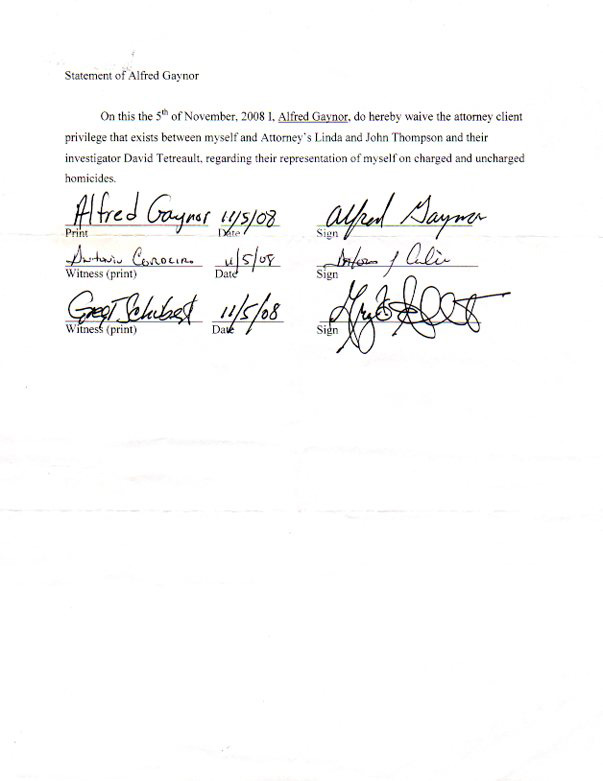 Statement of Alfred Gaynor
On this the 5th of November, 2008 I, Alfred Gaynor, do hereby waive the attorney client
privilege that exists between myself and Attorney's Linda and John Thompson and their
investigator David Tetreault, regarding their representation of myself on charged and uncharged
homicides.
Alfred Gaynor 11/5/08 Alfred Gaynor
Print Date Sign
Antonio Cordeiro 11/5/08
Witness (print) Date Sign
Greg Schubert 11/5/08
Witness (print) Date Sign